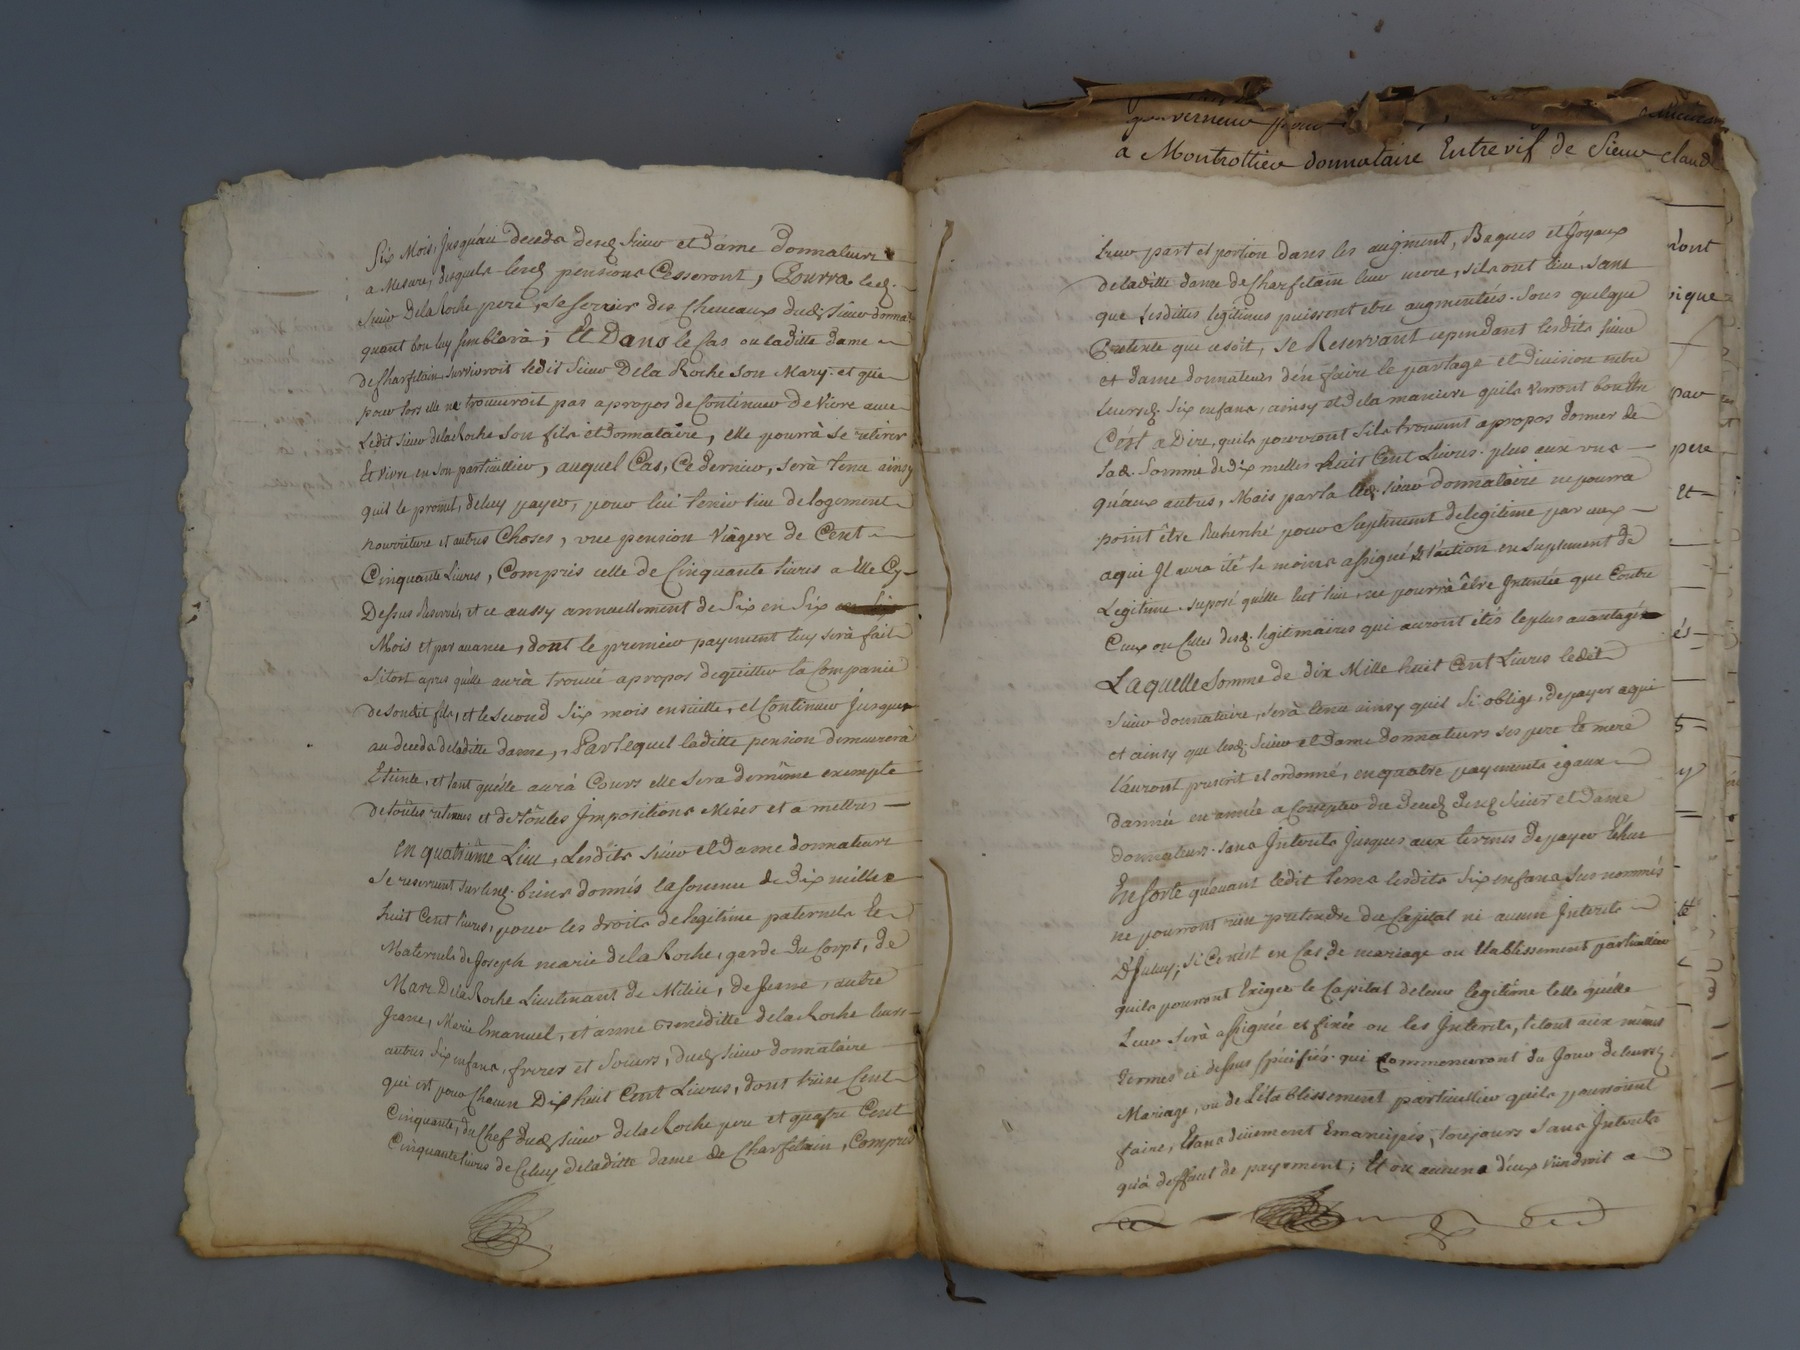 Six Mois, Jusqu'au decedz desd. Sieur et Dame Donnateurs
a Mesure, desquels lesd. pensions Cesseront, Pourra led.
Sieur De la Roche pere, se servir des Chevaux dud. Sieur donna.
quant bon luy semblera; Et Dans le Cas ou laditte dame
de Charfetain survivroit ledit Sieur De la Roche son Mary. et que
pour lors elle ne trouveroit pas apropos de Continuer de Vivre avec
Ledit Sieur de la Roche son fils et Donnataire, elle pourrà se retirer
Et vivre en son particullier, auquel Cas, Ce dernier, serà tenu ainsy
quil le promet, de luy payer, pour lui tenir lieu de logement
nourriture et autres Choses, une pension Viagere de Cent
Cinquante Livres, Compris celle de Cinquante livres a Elle Cy
Dessus Reservée, et ce aussy annuellement de Six en Six
Mois et par avance, dont le premier payement luy serà fait
sitost apres qu'elle aurà trouvé apropos de quitter la Compagnie
de sondit fils, et le second Six mois ensuitte, et Continuer jusques
au decedz de laditte dame, Par lequel laditte pension demeurerà
Eteinte, et tant qu'elle aurà Cours elle sera de même exempte
de toutes retenues et de toutes Impositions Mises et a mettres
en quatrieme Lieu, Lesdits sieur et Dame donnateurs
se reservent sur lesd. biens donnés la somme de Dix milles
huit Cent livres, pour les droits de legitime paternels Et
Maternels de Joseph marie de la Roche, garde du Corps, de
Marc De la Roche Lieutenant de Milice, de Jeane, autre
Jeane, Marie Emanuel, et anne Beneditte de la Roche leurs
autres Six enfans, freres et Soeurs, dud. sieur donnataire
qui est pour Chacun Dix huit Cent Livres, dont treize Cent
Cinquante, du Chef dud. sieur de la Roche pere et quatre Cent
Cinquante livres de Celuy de laditte dame de Charfetain, Compris
a Montrottier donnataire Entrevif de Sieur Claude
leur part et portion dans les augment, Bagues et Joyaux
de laditte dame de Charfetain leur mere, sils ont lieu, sans
que Lesdittes legitimes puissent etre augmentées. Sous quelque
Pretexte que ce soit, Se Reservant cependant lesdits sieur
et dame donnateurs d'en faire le partage et division entre
leursd. Six enfans, ainsy et De la maniere quils verront bon Etre
C'est a Dire, quils pourront sils trouvent apropos donner de
lad. Somme de dix milles huit Cent Livres. plus aux uns
qu'aux autres, Mais par la led. sieur donnataire ne pourra
point être Recherché pour Suplement de legitime par ceux
aqui Il aura eté le moins assigné l'action en suplement de
Legitime. suposé qu'elle lut lieu, ne pourrà être Intentée que Contre
Ceux ou Celles desd. legitimaires qui auront étés le plus avantagés
Laquelle Somme de dix Mille huit Cent Livres ledit
Sieur donnataire, serà tenu ainsy quil s'i oblige, de payer aqui
et ainsy que lesd. Sieur et Dame Donnateurs ses pere Et mere
l'auront prescrit et ordonné, en quatre payements egaux
d'année en année a Compter du decedz desd. Sieur et Dame
donnateurs. sans Interets Jusques aux termes De payer Echue
En sorte qu'avant ledit tems lesdits Six enfans sus nommés
ne pourront rien pretendre du Capital ni aucun Interets
D'Iceluy; si Ce n'est en Cas de mariage ou Etablissement particullier
quils pourront Exiger le Capital de leur legitime telle qu'elle
Leur serà assignée et fixée ou les Interets, le tout aux mêmes
termes ci dessus spécifiés. qui Commenceront du Jour de leursd.
Mariage, ou de L'établissement particullier quils pourroient
faire, Etans dûement Emancipés, toujours Sans Interets
qu'à deffaut de payement; Et ou aucuns d'eux viendroit a